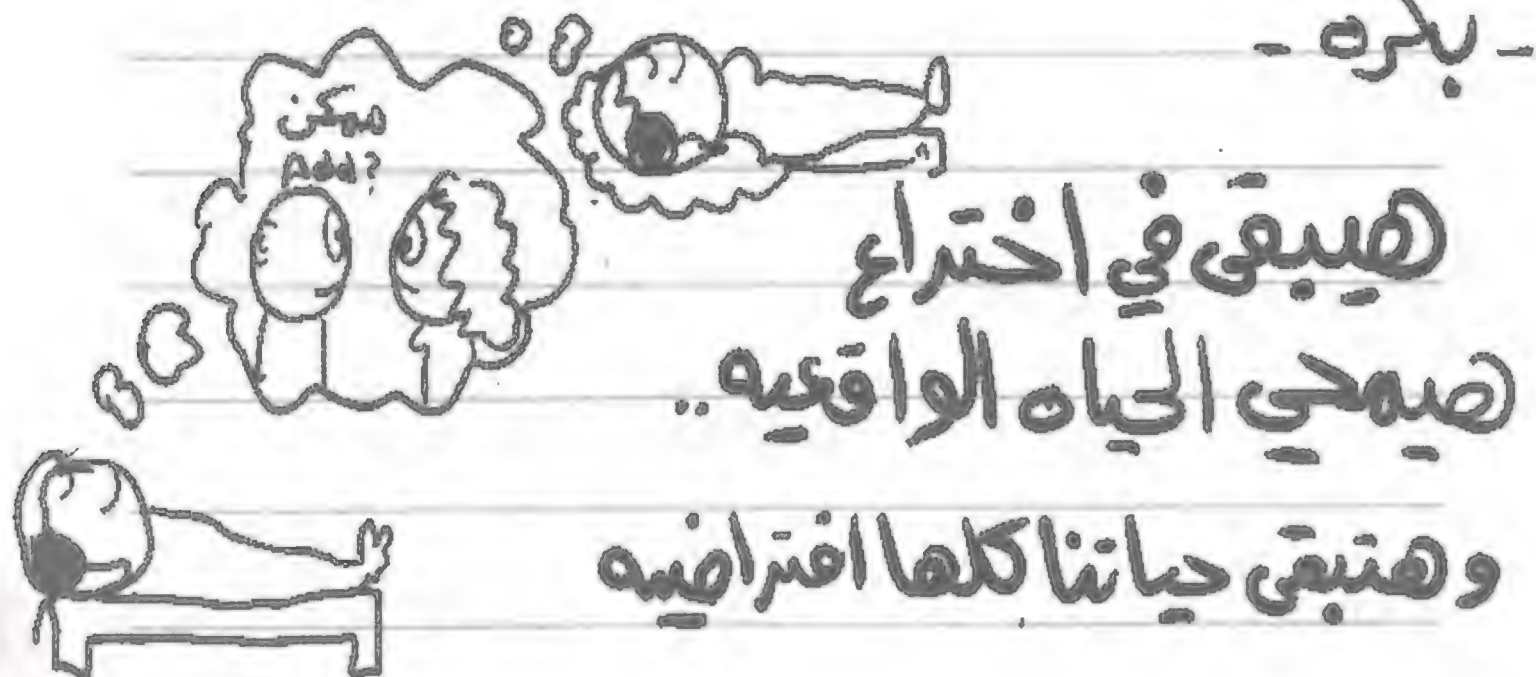 - بكره -
ممكن
Add?
هيبقى في اختراع
هيمحي الحياه الواقعيه ..
وهتبقى حياتنا كلها افتراضيه